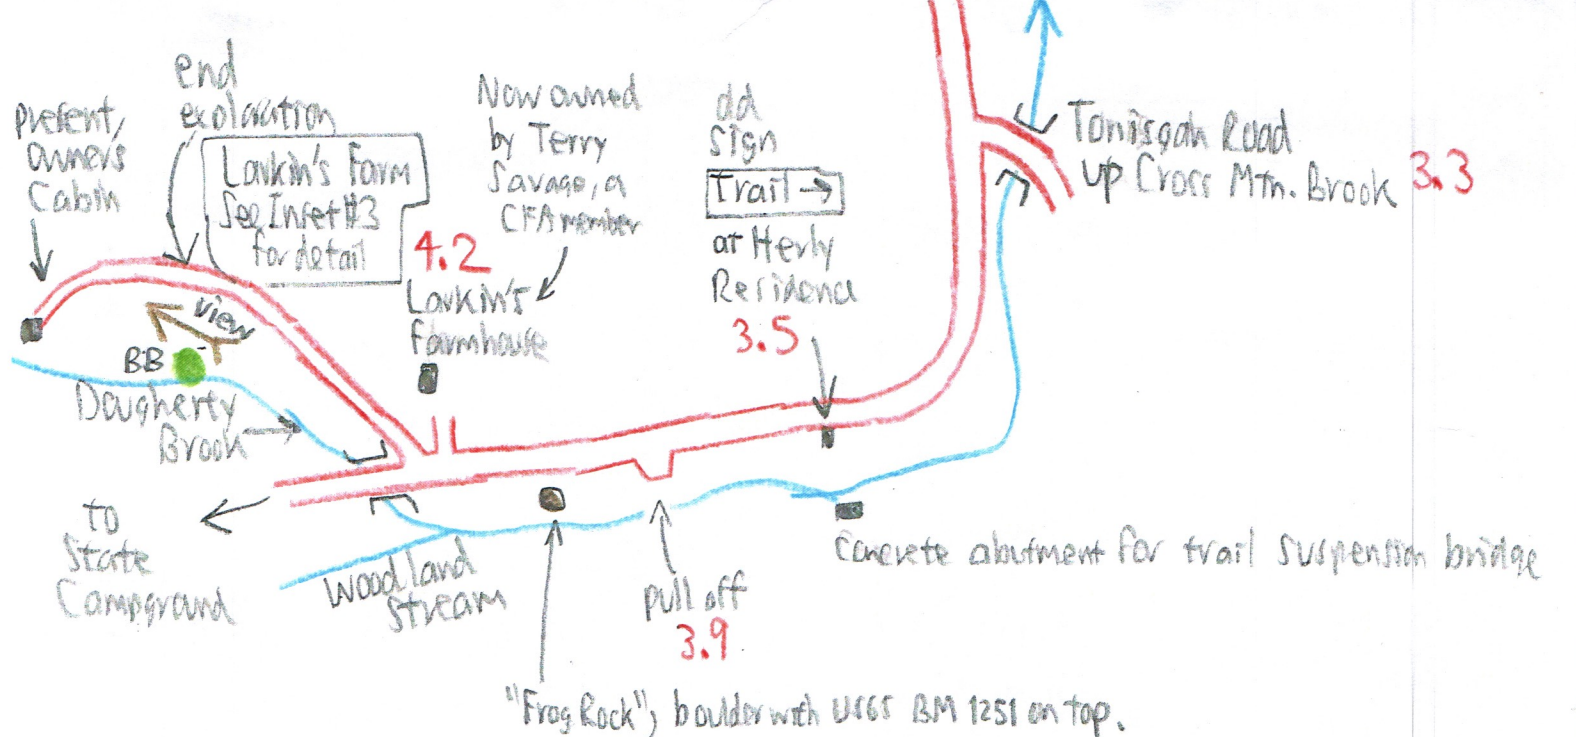 end
exploration
present,
owner's
Cabin
Larkin's Farm
See Inset #3
for detail
Now owned
by Terry
Savage, a
CFA member
4.2
Larkin's
farmhouse
dd
sign
Trail →
at Herly
Residence
3.5
Tanisgah Road
up Cross Mtn. Brook 3.3
View
BB
Dougherty
Brook
to
State
Campground
Woodland
Stream
pull off
3.9
Concrete abutment for trail suspension bridge
"Frog Rock"; boulder with USGS BM 1251 on top.